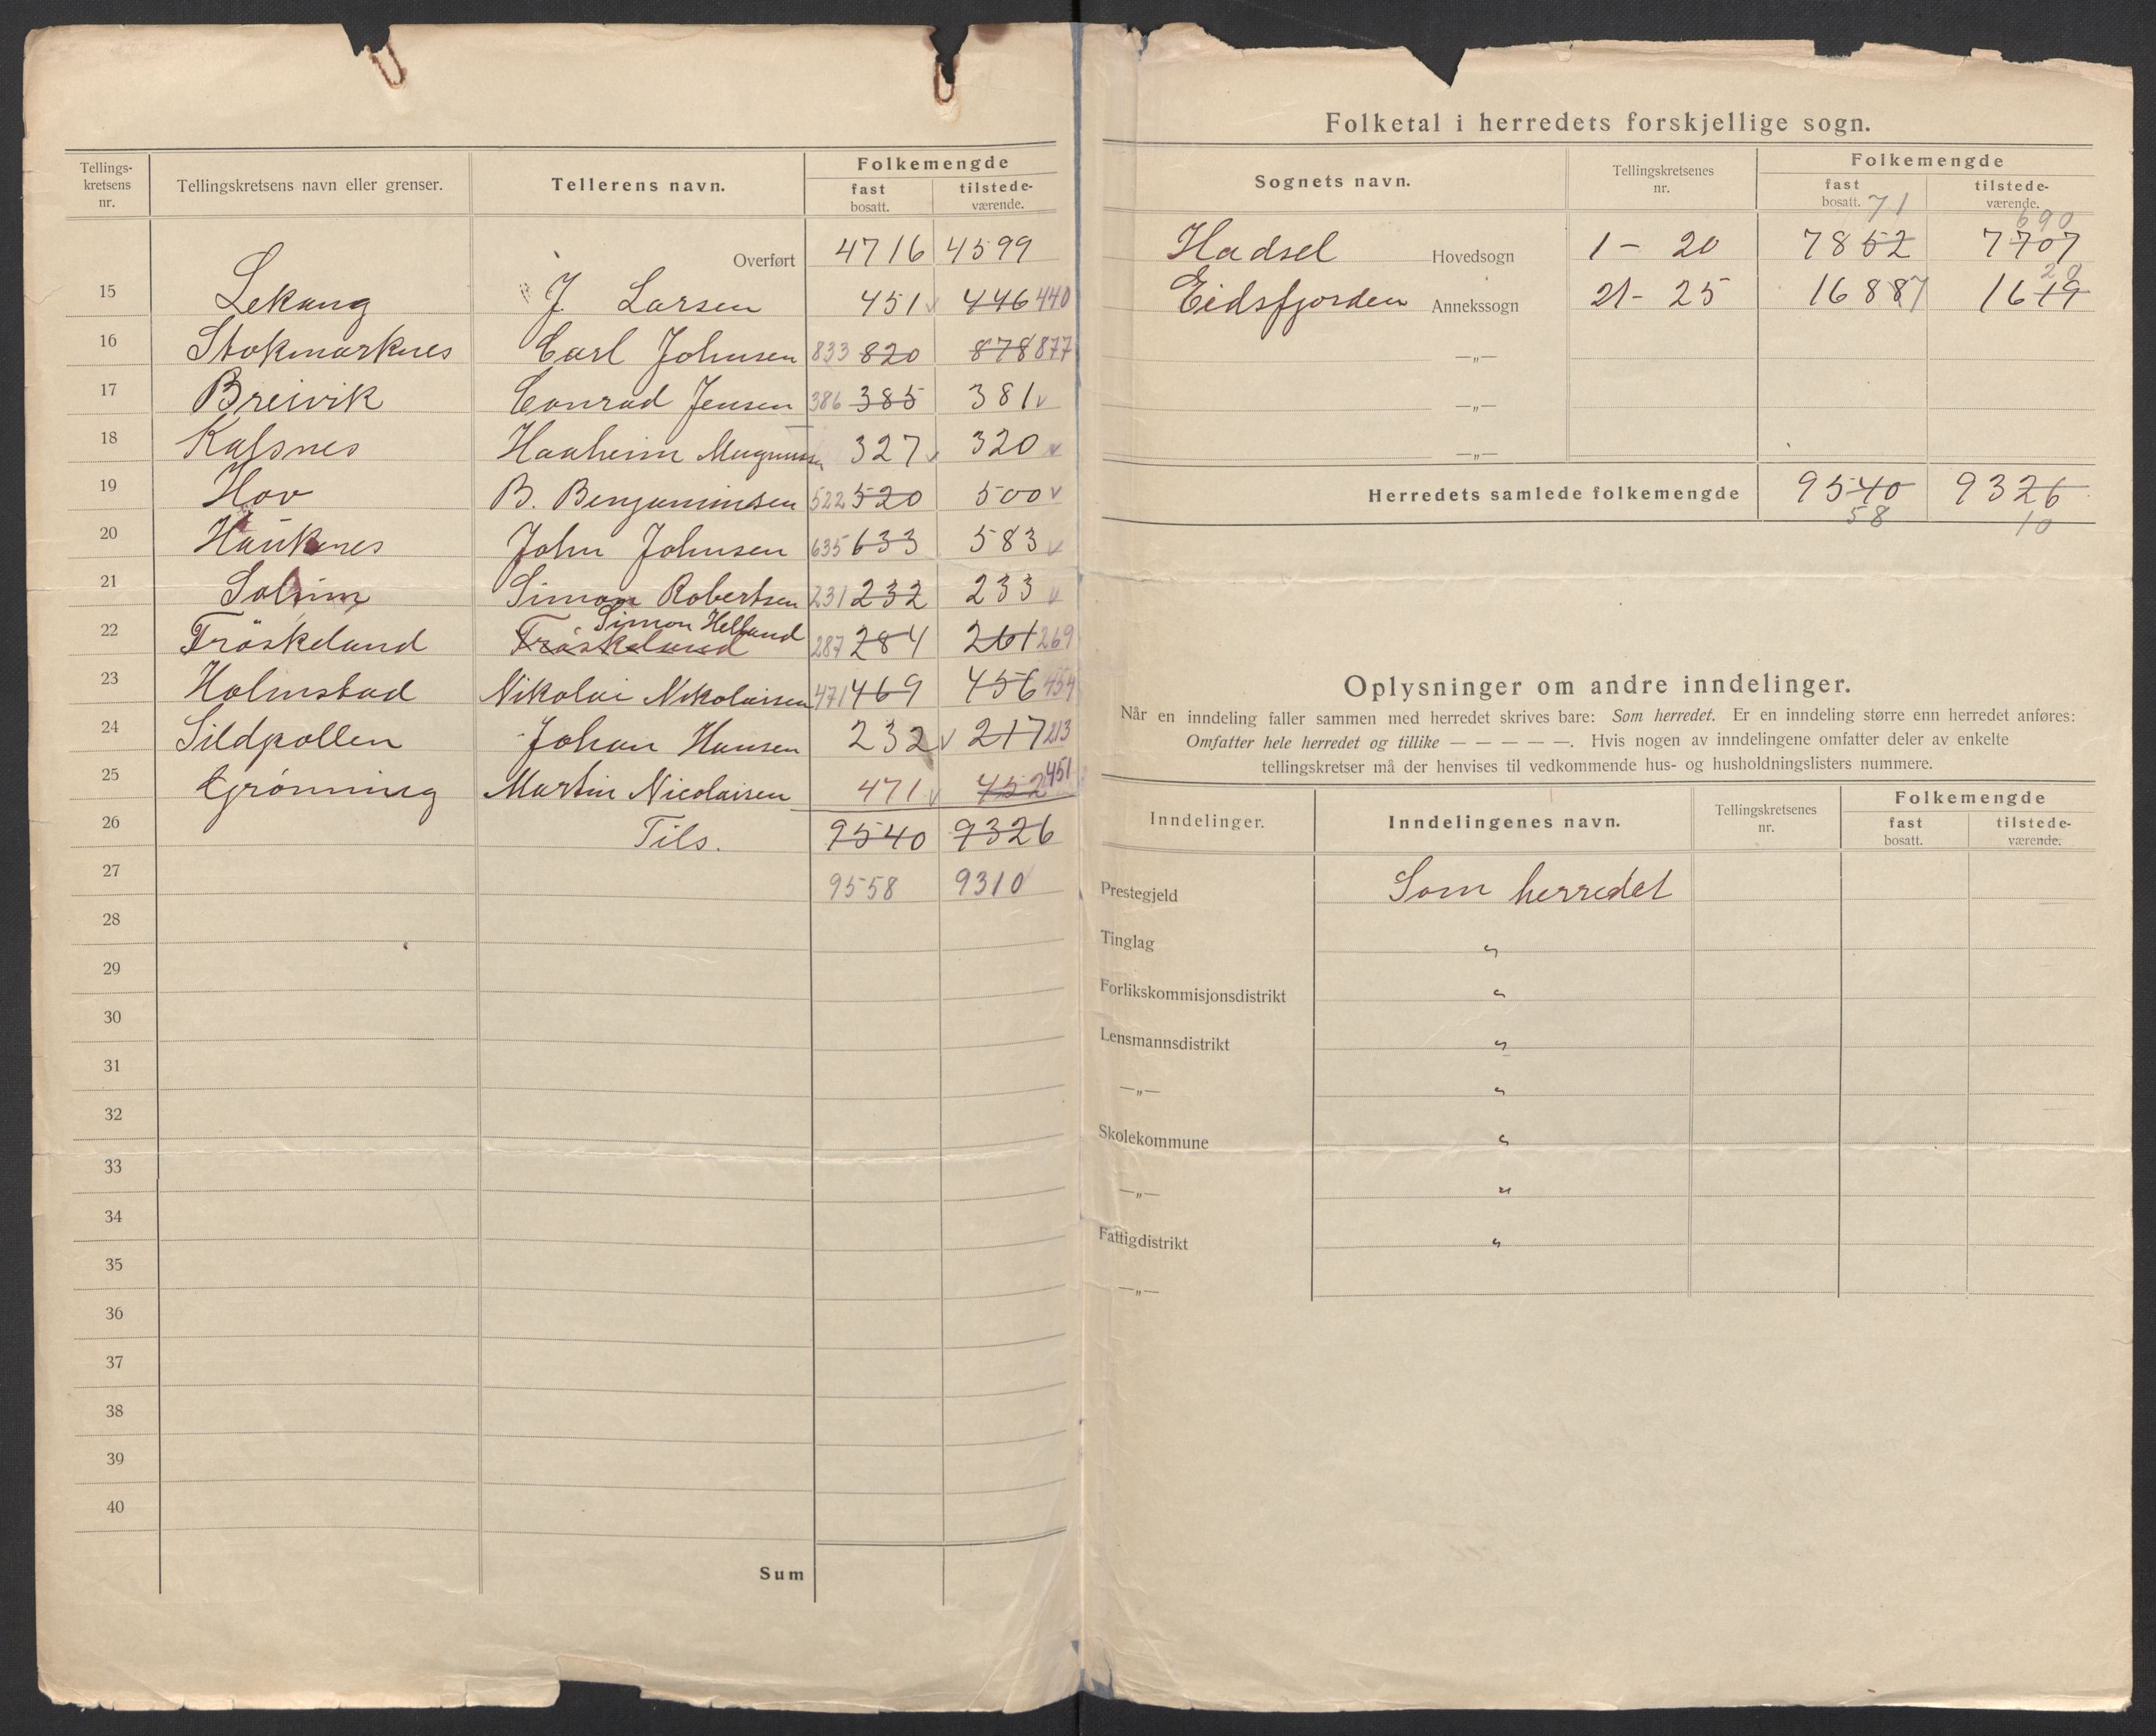 Tellings-
kretsens
nr.
Tellingskretsens navn eller grenser.
Tellerens navn.
Folkemengde
fast
bosatt.
tilstede-
værende.
Overført 4716 4599
15 Lekang J Larsen 451 v 446 440
16 Stokmarknes Carl Johnsen 833 820 878 877
17 Breivik Conrad Jensen 386 385 381 v
18 Kalsnes Haaheim Magnussen 327 v 320 v
19 Hov B. Benjaminsen 522 520 500 v
20 Haukenes John Johnsen 635 633 583 v
21 Solheim Simon Robertsen 231 232 233 v
Simon Helland
22 Fröskeland Fröskeland 287 284 261 269
23 Holmstad Nikolai Nikolaisen 471 469 456 454
24 Sildpollen Johan Hansen 232 v 217 213
25 Grönning Martin Nicolaisen 471 v 452 451
26 Tils. 9540 9326
27 9558 9310
28
29
30
31
32
33
34
35
36
37
38
39
40
Sum
Folketal i herredets forskjellige sogn.
Sognets navn.
Tellingskretsenes
nr.
Folkemengde
fast
bosatt.
tilstede-
værende.
71 690
Hadsel Hovedsogn 1 - 20 7852 7707
20
Eidsfjorden Annekssogn 21 - 25 16887 1619
—„—
—„—
—„—
Herredets samlede folkemengde 9540 9326
58 10
Oplysninger om andre inndelinger.
Når en inndeling faller sammen med herredet skrives bare: Som herredet. Er en inndeling større enn herredet anføres:
Omfatter hele herredet og tillike — — — — —. Hvis nogen av inndelingene omfatter deler av enkelte
tellingskretser må der henvises til vedkommende hus- og husholdningslisters nummere.
Inndelinger.
Inndelingenes navn.
Tellingskretsenes
nr.
Folkemengde
fast
bosatt.
tilstede-
værende.
Prestegjeld Som herredet
Tinglag "
Forlikskommisjonsdistrikt "
Lensmannsdistrikt "
—„— "
Skolekommune "
—„— "
Fattigdistrikt "
—„—